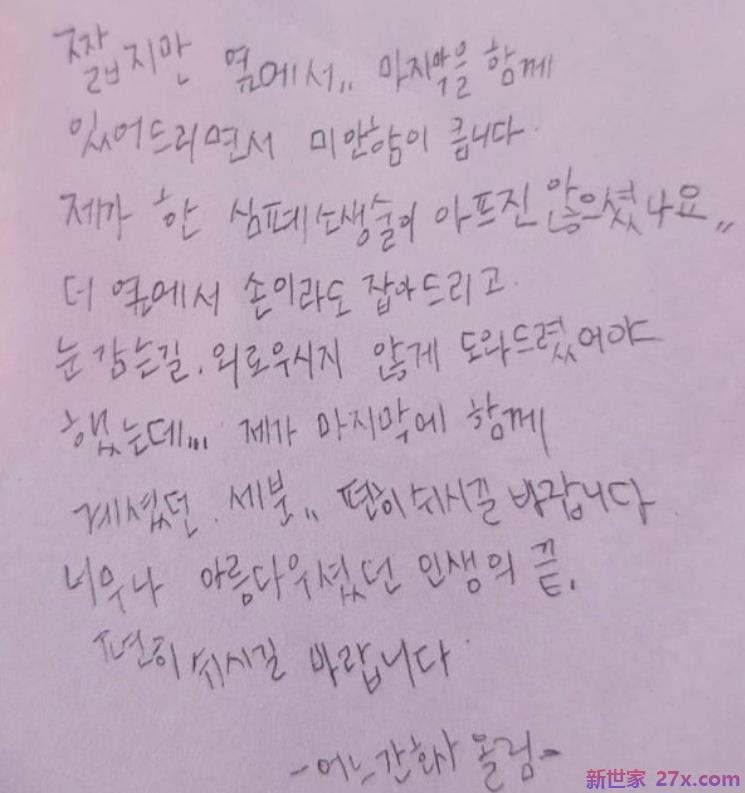 짧지만 옆에서,, 마지막을 함께
있어드리면서 미안함이 큽니다.
제가 한 심폐소생술이 아프진 않으셨나요,,
더 옆에서 손이라도 잡아드리고.
눈 감는길. 외로우시지 않게 도와드렸어야
했는데,,, 제가 마지막에 함께
계셨던. 세분,, 편히 쉬시길 바랍니다
너무나 아름다우셨던 인생의 끝,
편히 쉬시길 바랍니다.
-어느간호사 올림-
新世家 27x.com